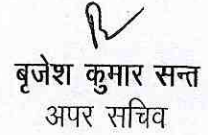 बृजेश कुमार सन्त
अपर सचिव